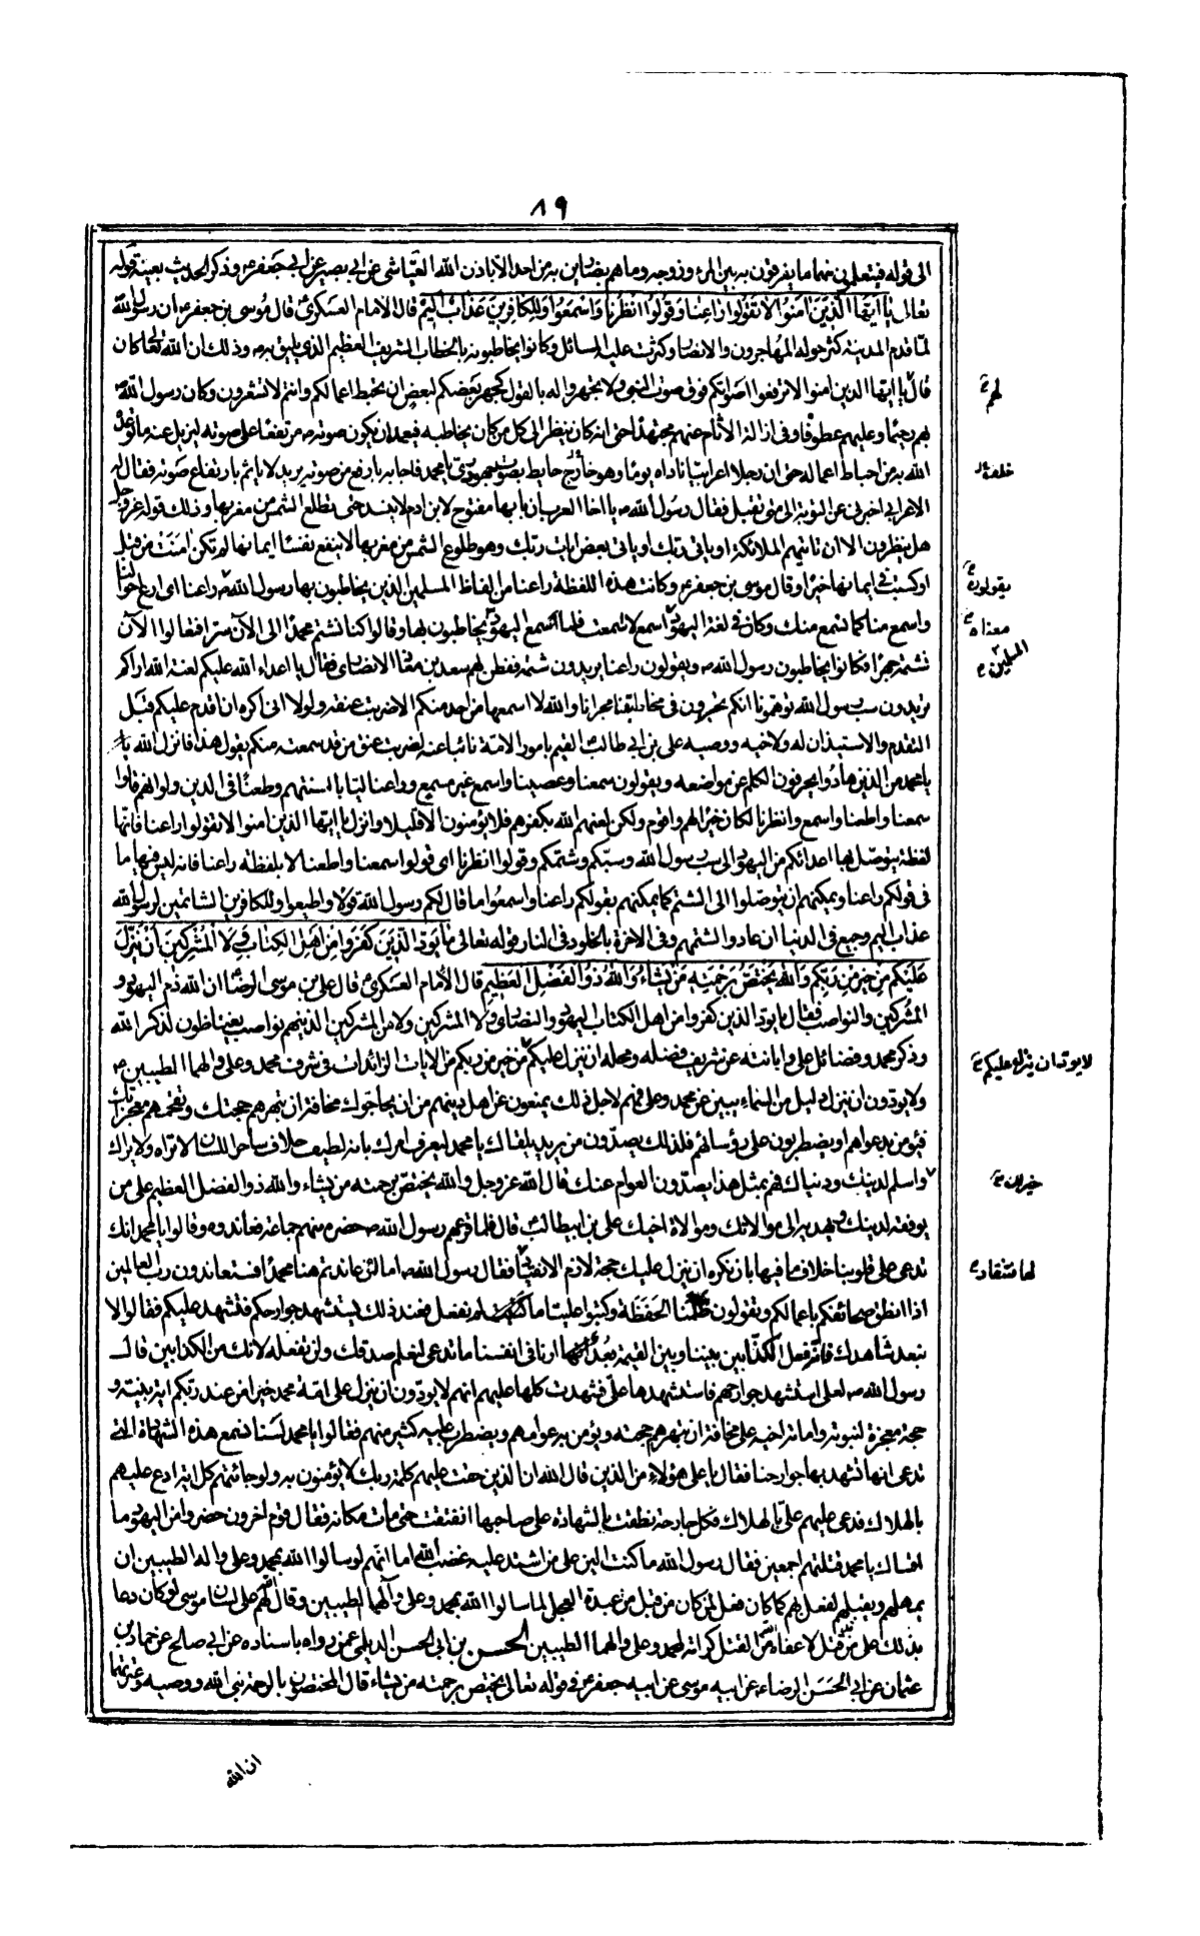 ٨٩
الى قوله فيتعلمون منهما ما يفرقون به بين المرء وزوجه وما هم بضارين به من احد الا باذن الله العياشى عن ابى بصير عن ابى جعفر ع وذكر الحديث بعينه قوله
تعالى يا ايها الذين امنوا لا تقولوا راعنا وقولوا انظرنا واسمعوا وللكافرين عذاب اليم قال الامام العسكرى ع قال موسى بن جعفر ع ان رسول الله
لما قدم المدينة كثر حوله المهاجرون والانصار وكثرت عليه المسائل وكانوا يخاطبونه بالخطاب الشريف العظيم الذى يليق به ص وذلك ان الله تعالى كان
قال يا ايها الذين امنوا لا ترفعوا اصواتكم فوق صوت النبى ولا تجهروا له بالقول كجهر بعضكم لبعض ان تحبط اعمالكم وانتم لا تشعرون وكان رسول الله
بهم رحيما وعليهم عطوفا وفى ازالة الاثام عنهم مجتهدا حتى انه كان ينظر الى كل من كان يخاطبه فيعمد ان يكون صوته ص مرتفعا على صوته ليزيل عنه ما توعده
الله به من احباط اعماله حتى ان رجلا اعرابيا ناداه يوما وهو حائط بصوت جهورى يا محمد فاجابه بارفع من صوته يريد لا ياثم بارتفاع صوته فقال له
الاعرابى اخبرنى عن التوبة الى متى تقبل فقال رسول الله ص يا اخا العرب ان بابها مفتوح لابن ادم لا ينسد حتى تطلع الشمس من مغربها وذلك قوله عز وجل
هل ينظرون الا ان تاتيهم الملائكة او ياتى ربك او ياتى بعض ايات ربك وهو طلوع الشمس من مغربها لا ينفع نفسا ايمانها لم تكن امنت من قبل
او كسبت فى ايمانها خيرا وقال موسى بن جعفر ع وكانت هذه اللفظة راعنا من الفاظ المسلمين الذين يخاطبون بها رسول الله ص راعنا اى ارع احوالنا
واسمع منا كما نسمع منك وكان فى لغة اليهود اسمع لا سمعت فلما سمع اليهود يخاطبون بها وقالوا كنا نشتم محمدا الى الآن سرا فقالوا الآن
نشتمه جهرا فكانوا يخاطبون رسول الله ص ويقولون راعنا يريدون شتمه ففطن لهم سعد بن معاذ الانصارى فقال يا اعداء الله عليكم لعنة الله اراكم
تريدون سب رسول الله توهمونا انكم تجرون فى مخاطبته مجرانا والله لا اسمعها من احد منكم الا ضربت عنقه ولولا انى اكره ان اقدم عليكم قبل
التقدم والاستيذان له ولاخيه ووصيه على بن ابى طالب القيم بامور الامة نائبا عنه لضربت عنق من قد سمعته منكم يقول هذا فانزل الله يا
يا محمد من الذين هادوا يحرفون الكلم عن مواضعه ويقولون سمعنا وعصينا واسمع غير مسمع وراعنا ليا بالسنتهم وطعنا فى الدين ولو انهم قالوا
سمعنا واطعنا واسمع وانظرنا لكان خيرا لهم واقوم ولكن لعنهم الله بكفرهم فلا يؤمنون الا قليلا وانزل يا ايها الذين امنوا لا تقولوا راعنا فانها
لفظة يتوصل بها اعدائكم من اليهود الى سب رسول الله وسبكم وشتمكم وقولوا انظرنا اى قولوا سمعنا واطعنا لا بلفظة راعنا فانه ليس فيها ما
فى قولكم راعنا ويمكنهم ان يتوصلوا الى الشتم كما يمكنهم بقولكم راعنا واسمعوا ما قال لكم رسول الله قولا واطيعوا وللكافرين الشاتمين لرسول الله
عذاب اليم وجيع فى الدنيا ان عادوا لشتمهم وفى الاخرة بالخلود فى النار قوله تعالى ما يود الذين كفروا من اهل الكتاب ولا المشركين ان ينزل
عليكم من خير من ربكم والله يختص برحمته من يشاء والله ذو الفضل العظيم قال الامام العسكرى ع قال على بن موسى الرضا ان الله ذم اليهود و
المشركين والنواصب فقال ما يود الذين كفروا من اهل الكتاب اليهود والنصارى ولا المشركين ولا من المشركين الذين هم نواصب يغتاظون لذكر الله
وذكر محمد وفضائل على وابانته عن شريف فضله ومحله ان ينزل عليكم من خير من ربكم من الايات الزائدات فى شرف محمد وعلى والهما الطيبين ع
ولا يودون ان ينزل دليل من السماء يبين عن محمد وعلى فهم لاجل ذلك يمنعون عن اهل دينهم من ان يحاجوك مخافة ان تبهرهم حجتك وتفحمهم معجزاتك
فيؤمن بك عوامهم او يضطربون على رؤسائهم فلذلك يصدون من يريد لقاك يا محمد ليعرف امرك بانه لطيف حلاف ساحر اللسان لا تراه ولا يراك
واسلم لدينك ودنياك فهم بمثل هذا يصدون العوام عنك قال الله عز وجل والله يختص برحمته من يشاء والله ذو الفضل العظيم على من
يوفقه لدينك ويهديه الى موالاتك وموالاة اخيك على بن ابيطالب ع قال فلما قرعهم رسول الله ص حضر منهم جماعة فعاندوه وقالوا يا محمد انك
تدعى على قلوبنا خلاف ما فيها ما نكره ان ينزل عليك حجة لازم الانقياد فقال رسول الله ص اما لئن عاندتم هنا محمدا فستعاندون رب العالمين
اذا انطق صحائفكم باعمالكم وتقولون ظلمتنا الحفظة وكتبوا علينا ما لم نفعل فعند ذلك يستشهد جوارحكم فتشهد عليكم فقالوا لا
تبعد شاهدك فانه فعل الكذابين بيننا وبين القيمة بعد ارنا فى انفسنا ما تدعى لنعلم صدقك ولن تفعله لانك من الكذابين قال
رسول الله ص لعلى استشهد جوارحهم فاستشهدها على فشهدت كلها عليهم انهم لا يودون ان ينزل على امة محمد خير من عند ربكم اية بينة و
حجة معجزة لنبوته وامامة اخيه على مخافة ان تبهرهم حجته ويؤمن به عوامهم ويضطرب عليه كثير منهم فقالوا يا محمد لسنا نسمع هذه الشهادة التى
تدعى انها تشهد بها جوارحنا فقال يا على هؤلاء من الذين قال الله ان الذين حقت عليهم كلمة ربك لا يؤمنون به ولو جائتهم كل اية ادع عليهم
بالهلاك فدعى عليهم على بالهلاك فكل جارحة نطقت بالشهادة على صاحبها انفتقت حتى مات مكانه فقال قوم اخرون حضروا من اليهود ما
اقساك يا محمد قتلتهم اجمعين فقال رسول الله ما كنت الين على من اشتد عليه غضب الله اما انهم لو سالوا الله بمحمد وعلى واله الطيبين ان
يمهلهم ويقيلهم لفعل بهم كما كان فعل بمن كان من قبل من عبدة العجل لما سالوا الله بمحمد وعلى وآلهما الطيبين وقال الله لهم على لسان موسى لو كان دعا
بذلك على من قتل لاعفاه الله من القتل كرامة لمحمد وعلى والهما الطيبين الحسن بن ابى الحسن الديلمى عمن رواه باسناده عن ابى صالح عن حماد بن
عثمان عن ابى الحسن الرضا ع عن ابيه موسى عن ابيه جعفر ع فى قوله تعالى يختص برحمته من يشاء قال المختصون بالرحمة نبى الله ووصيه وعترتهما
لهم
خلف
يقولون
معناه
المسلمين
لا يود ان ينزل عليكم
خير لك
لها منقاد
ان الله